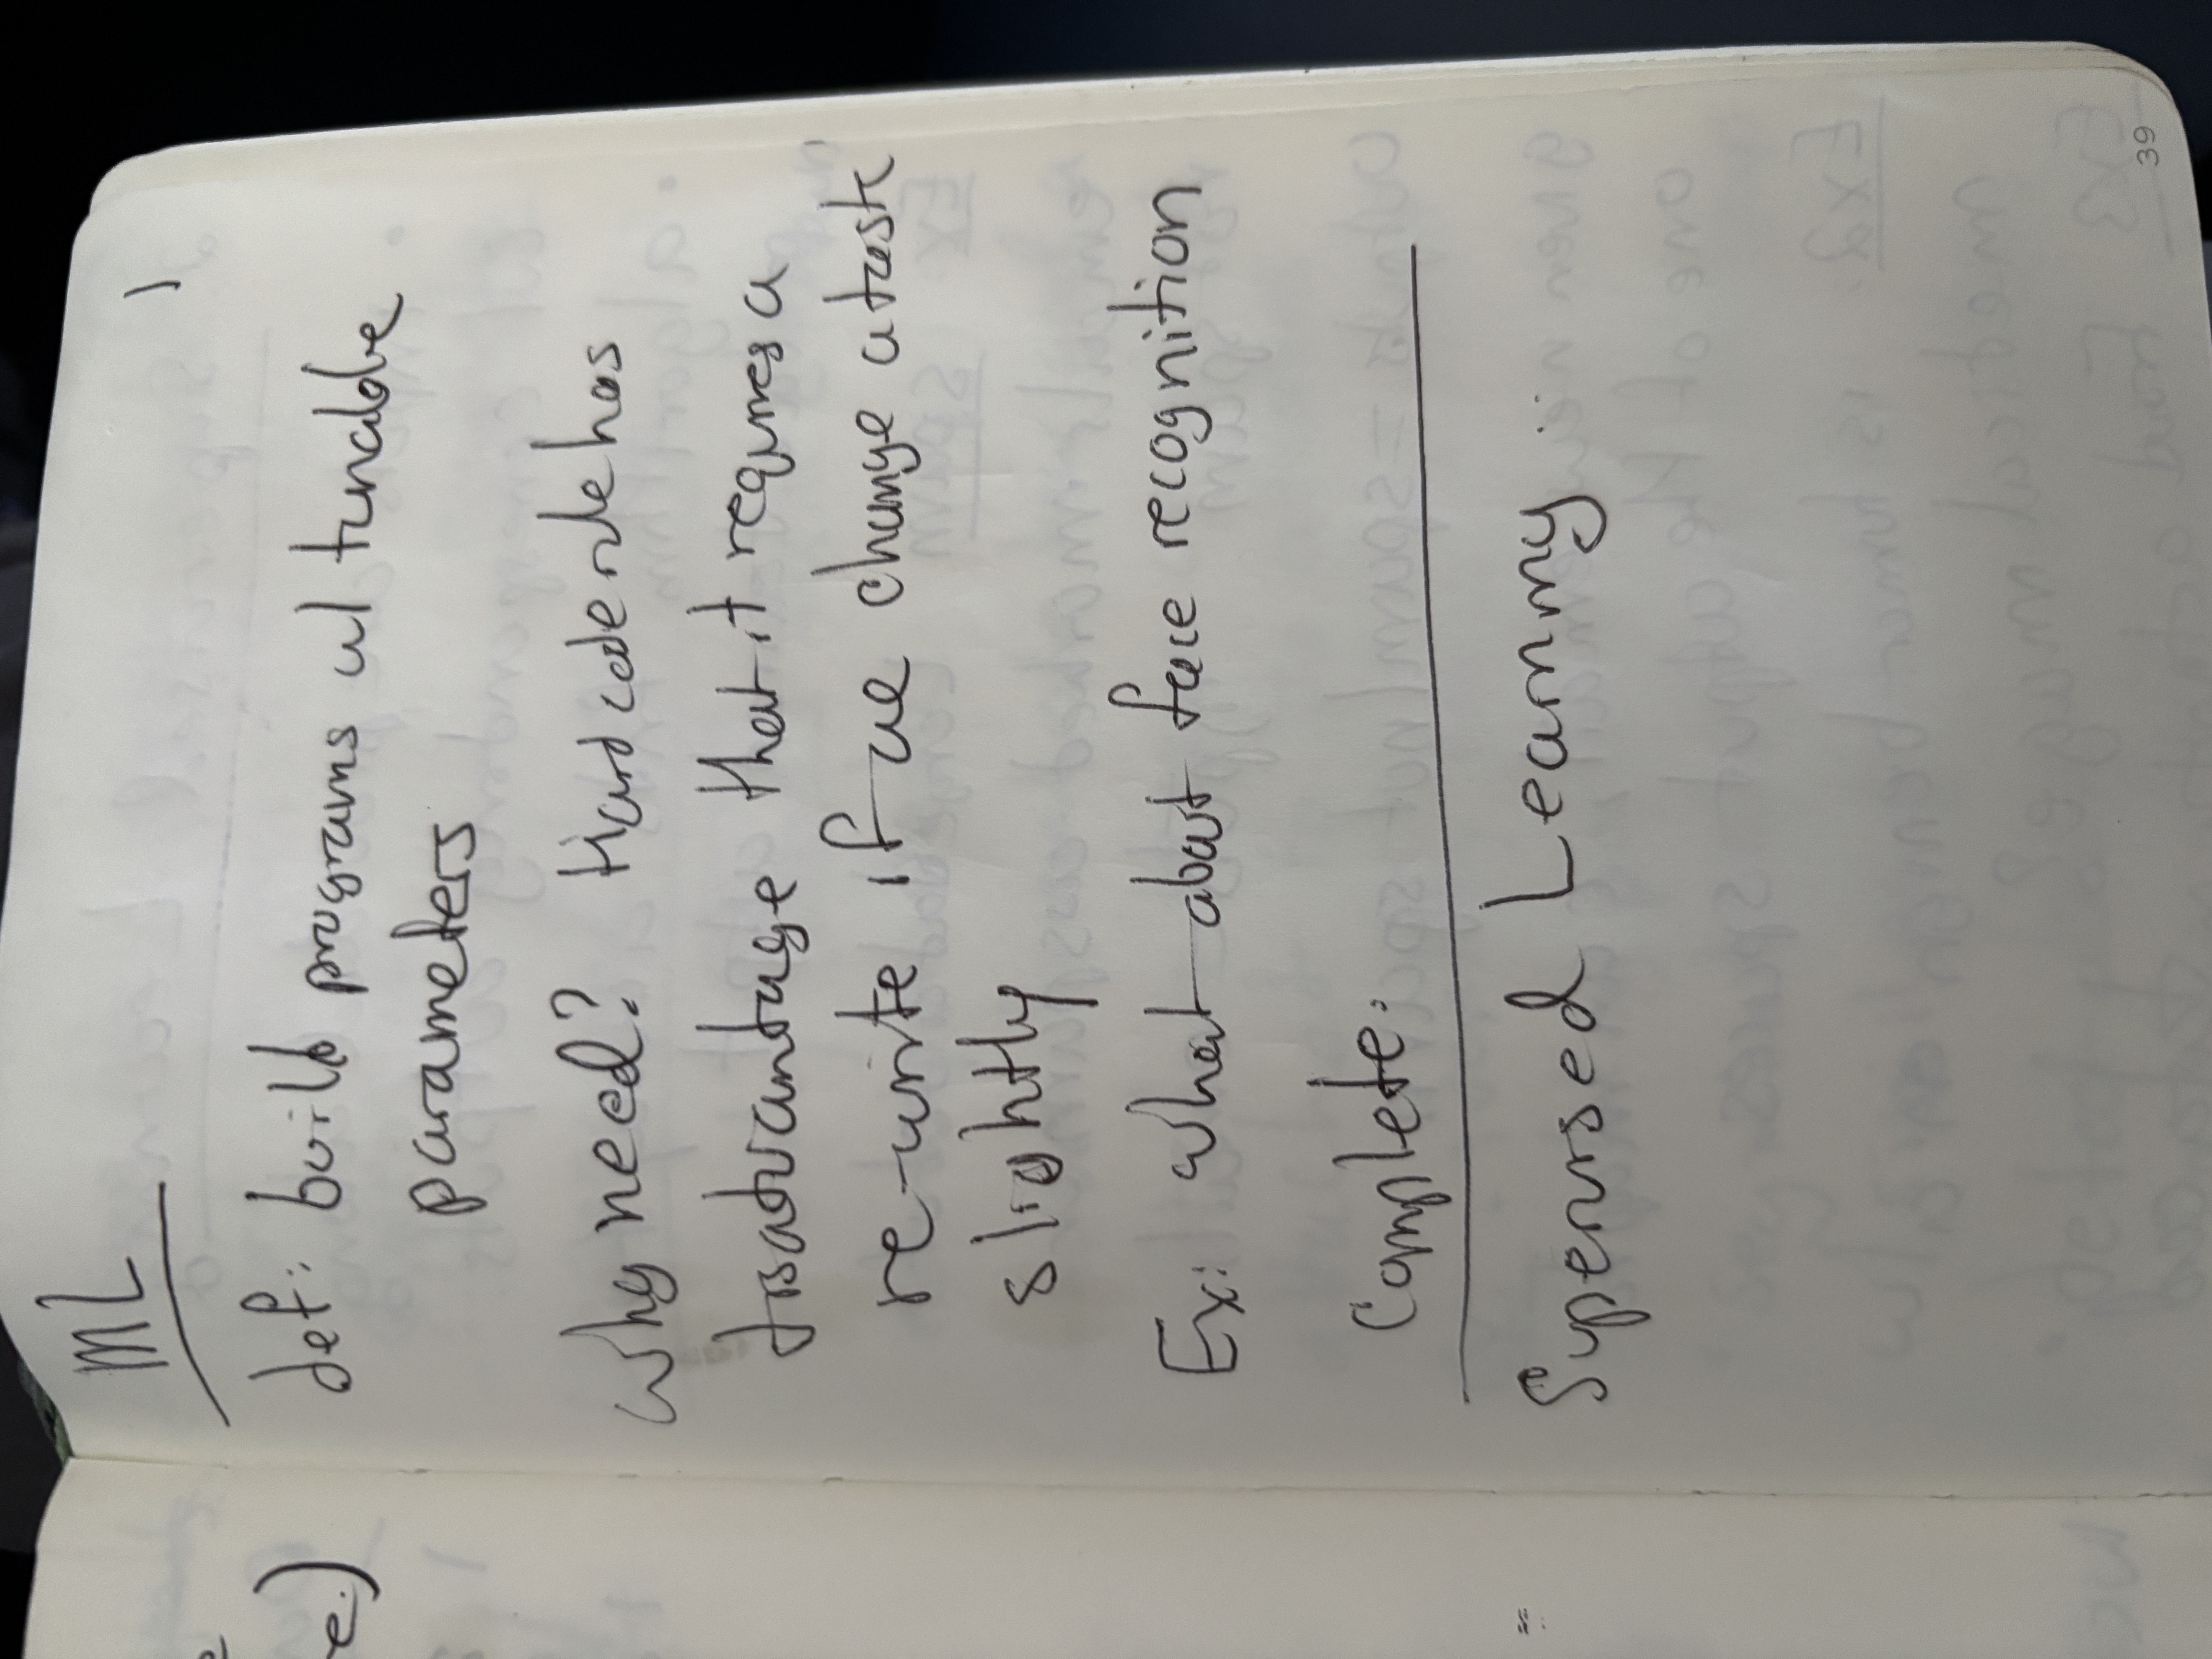 ML
1
def: build programs w/ tunable
parameters
Why need? Hard code rule has
disadvantage that it requires a
re-write if we change a task
slightly
Ex: what about face recognition
Complete.
Supervised Learning ..
39